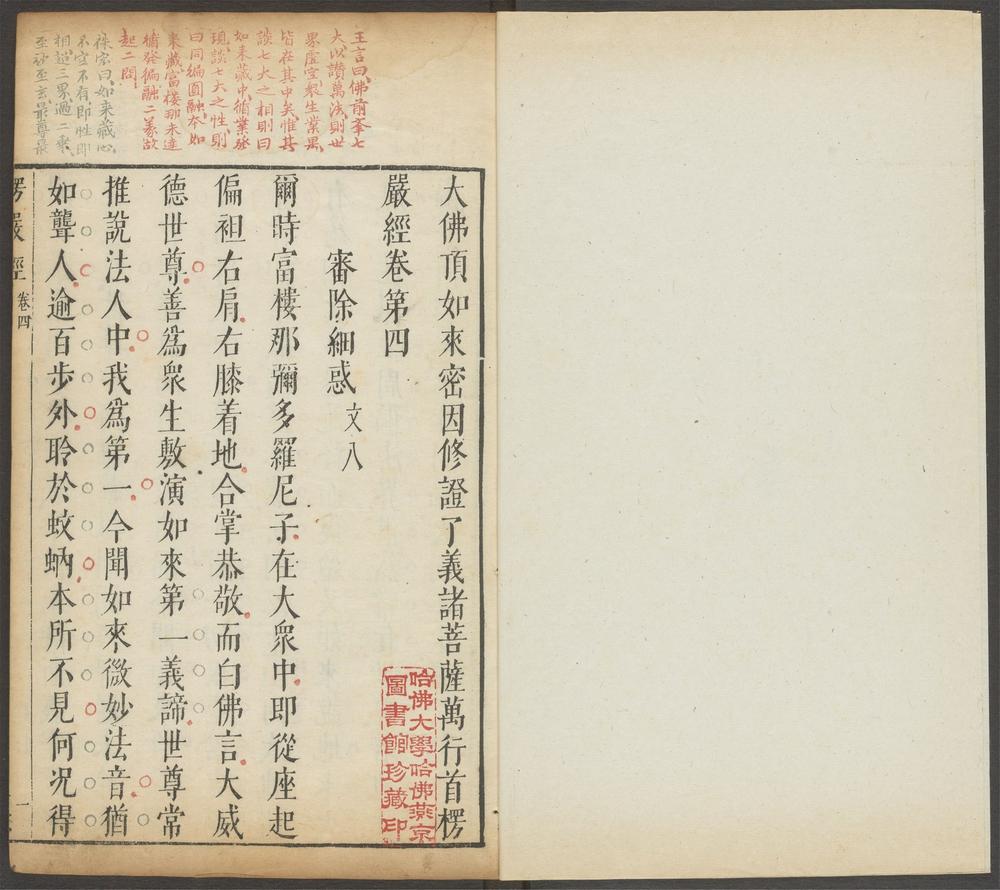 王言曰佛前舉七
大以讚萬法則世
界虛空眾生業果
皆在其中矣惟其
談七大之相則曰
如来藏中循業發
現談七大之性則
曰同徧圓融本如
来藏富樓那未達
循發徧融二義故
起二問
宗曰如来藏心
不空不有即性即
相超三界過二乘
至妙至玄最尊最
大佛頂如來密因修證了義諸菩薩萬行首楞
嚴經卷第四
審除細惑 文八
爾時富樓那彌多羅尼子在大眾中即從座起
偏袒右肩右膝着地合掌恭敬而白佛言大威
德世尊善爲眾生敷演如來第一義諦世尊常
推說法人中我爲第一今聞如來微妙法音猶
如聾人逾百步外聆於蚊蚋本所不見何况得
楞嚴經 卷四 一
哈佛大學哈佛燕京
圖書館珍藏印